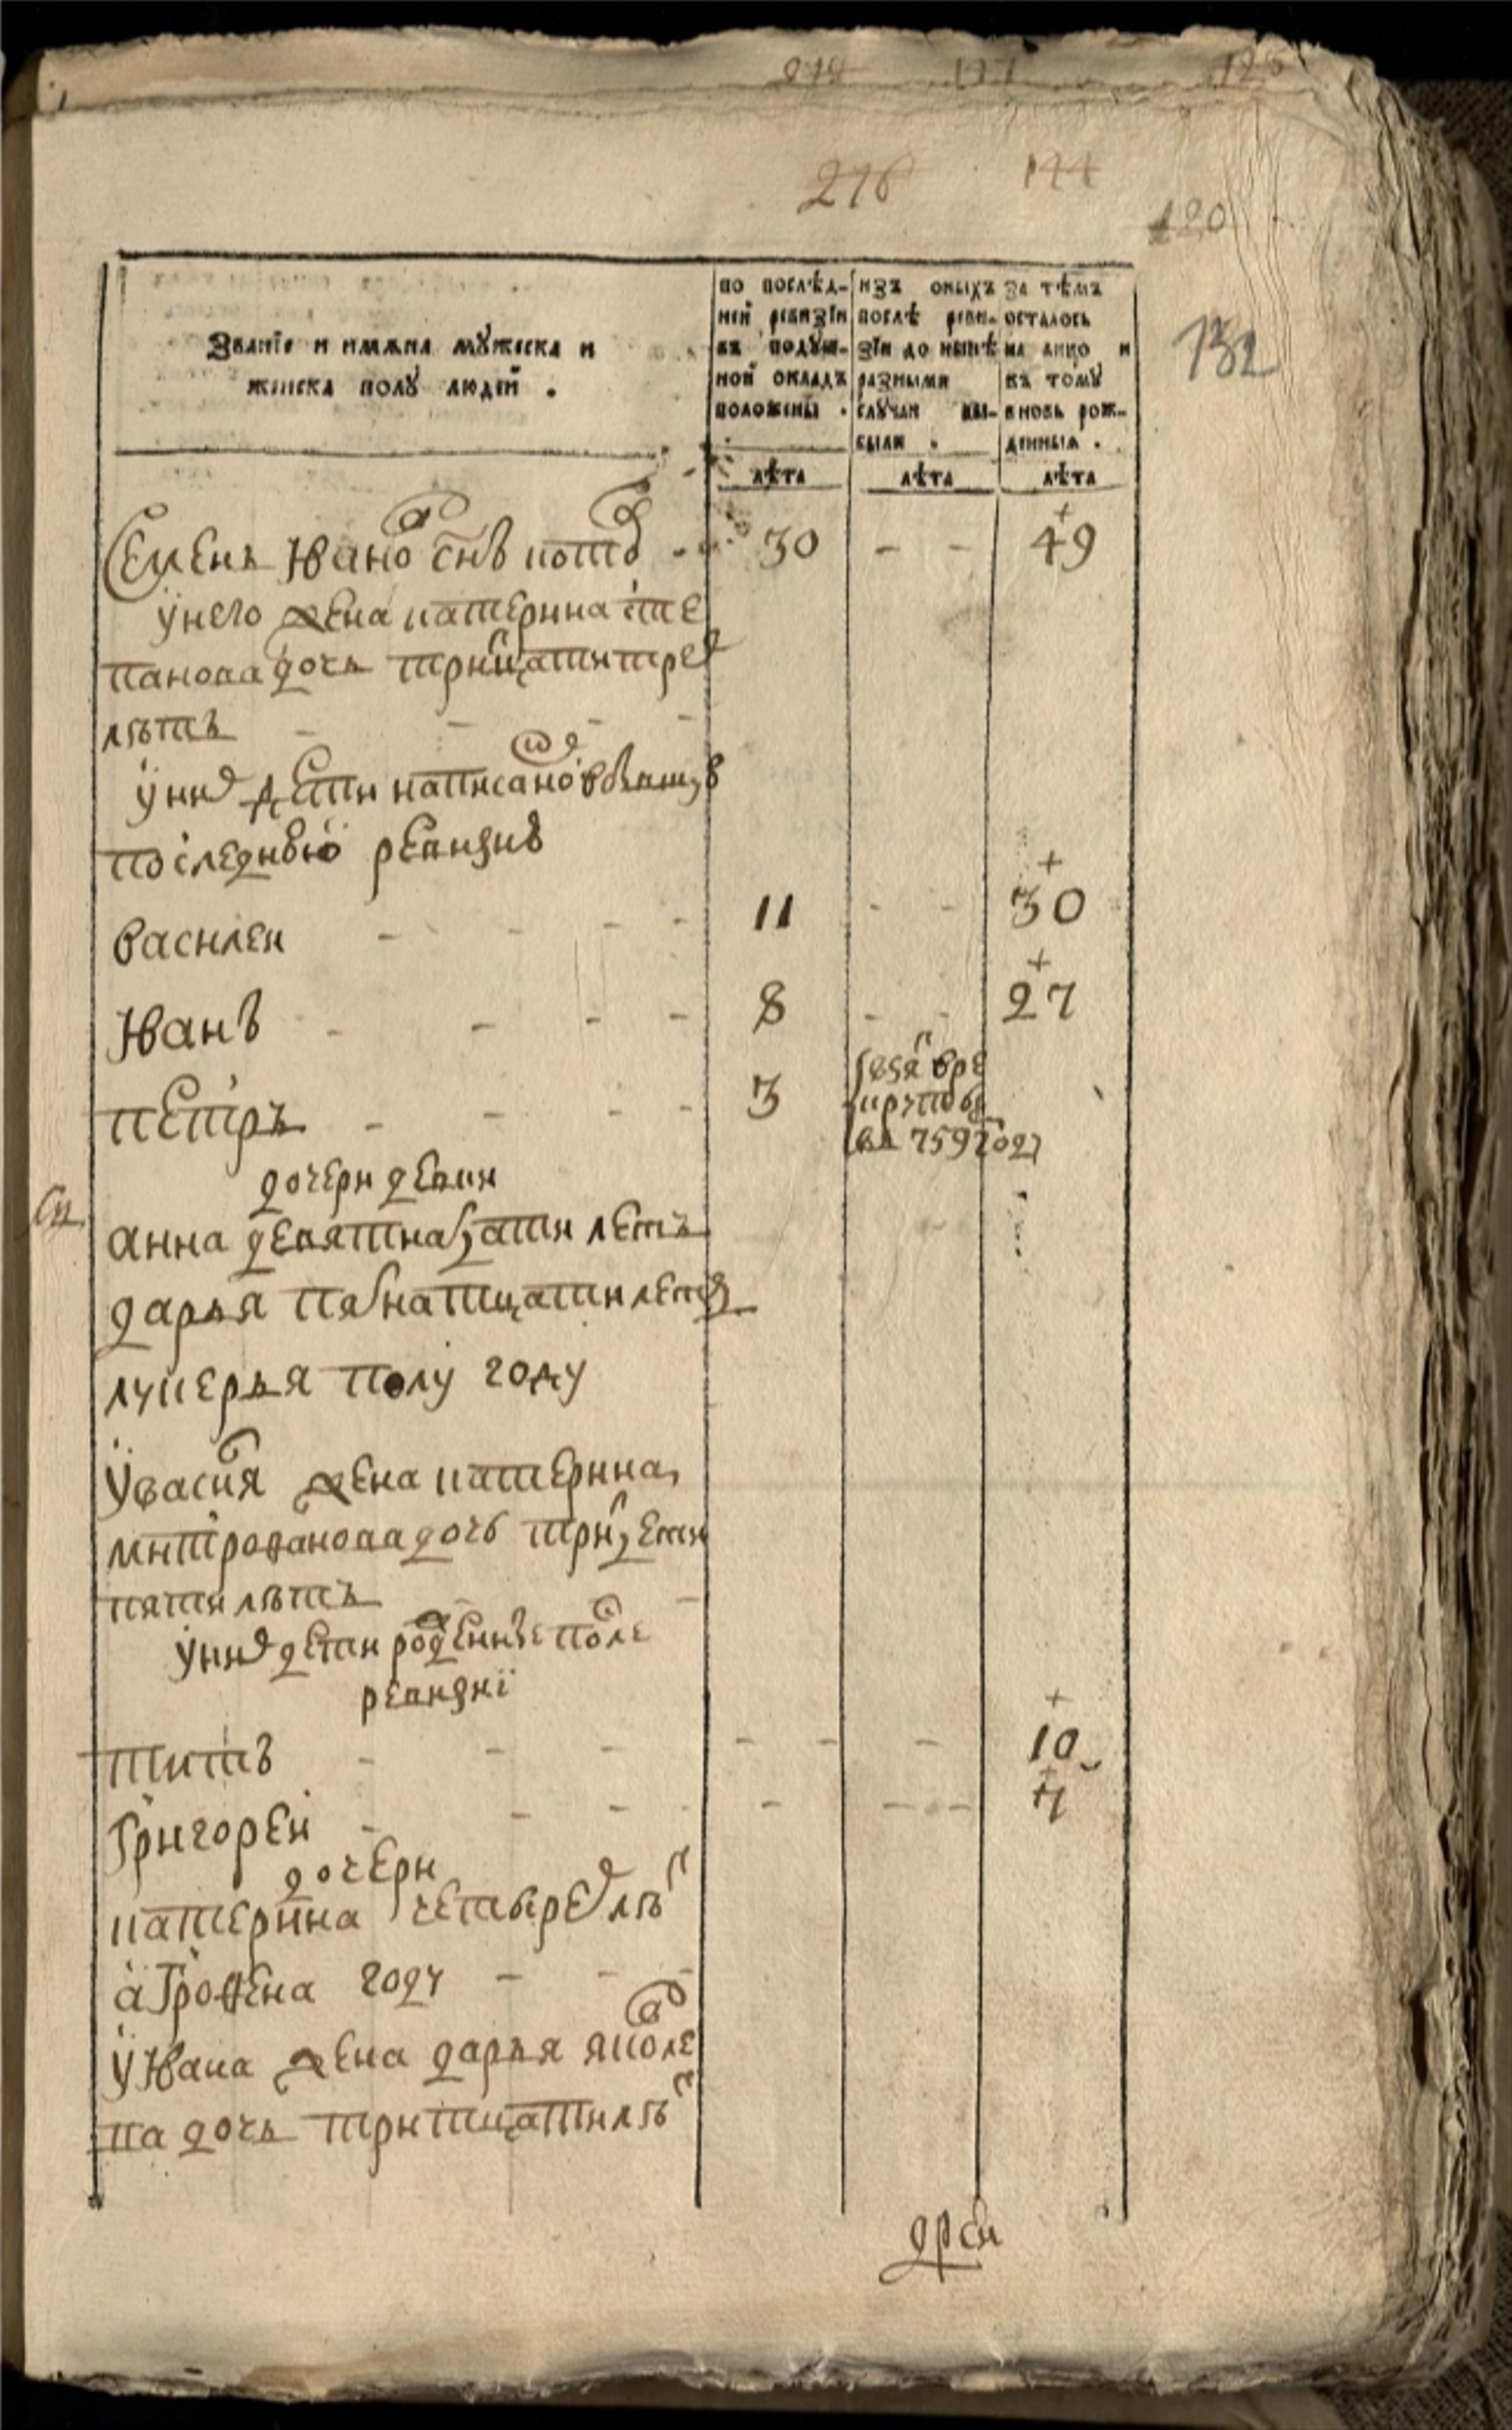 278 137 128
276 144
120
132
Званїе и имѧна мꙋжеска и
женска полꙋ людей .
по послѣд-
ней ревизїи
въ подꙋш-
ной окладъ
положены .
изъ оныхъ
послѣ реви-
зїи до нынѣ
разными
слꙋчаи вы-
были .
за тѣмъ
осталось
на лицо и
къ томꙋ
вновь рож-
денныѧ .
лѣта лѣта лѣта
Семенъ Ивано снъ 30 - - 49
у него жена катерина сте
панова дочь трицати трех
лѣтъ - - - -
у них дети написано в бывшую
последнюю ревизию
василеи - - - - 11 - - 30
Иванъ - - - - 8 - - 27
петръ - - - - 3
взят в ре
круты
въ 759 году
дочери девки
анна девятнадцати летъ
дарья пятнатцати летъ
лукерья полу году
у васил жена катерина
митрофанова дочь тритцети
пяти лѣтъ -
у них дети рожденные после
ревизиї
титъ - - - - - - 10
Григореи - - - - - - 4
дочери
катерина четырех лѣт
аГрофена году - - -
у Ивана жена дарья яковле
ва дочь тритцати лѣт